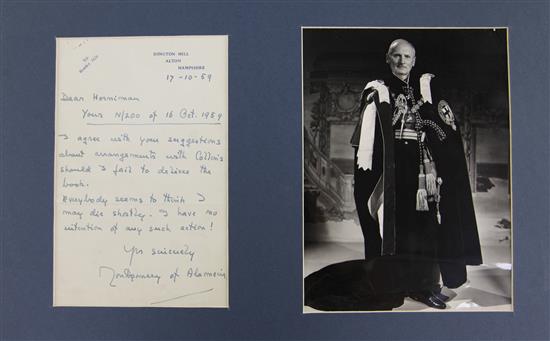 ISINGTON MILL
ALTON
HAMPSHIRE
17-10-59
Dear Horniman
Your N/200 of 16 Oct. 1959
I agree with your suggestions
about arrangements with Collins
should I fail to deliver the
book.
Everybody seems to think I
may die shortly. I have no
intention of any such action!
Yrs sincerely
Montgomery of Alamein